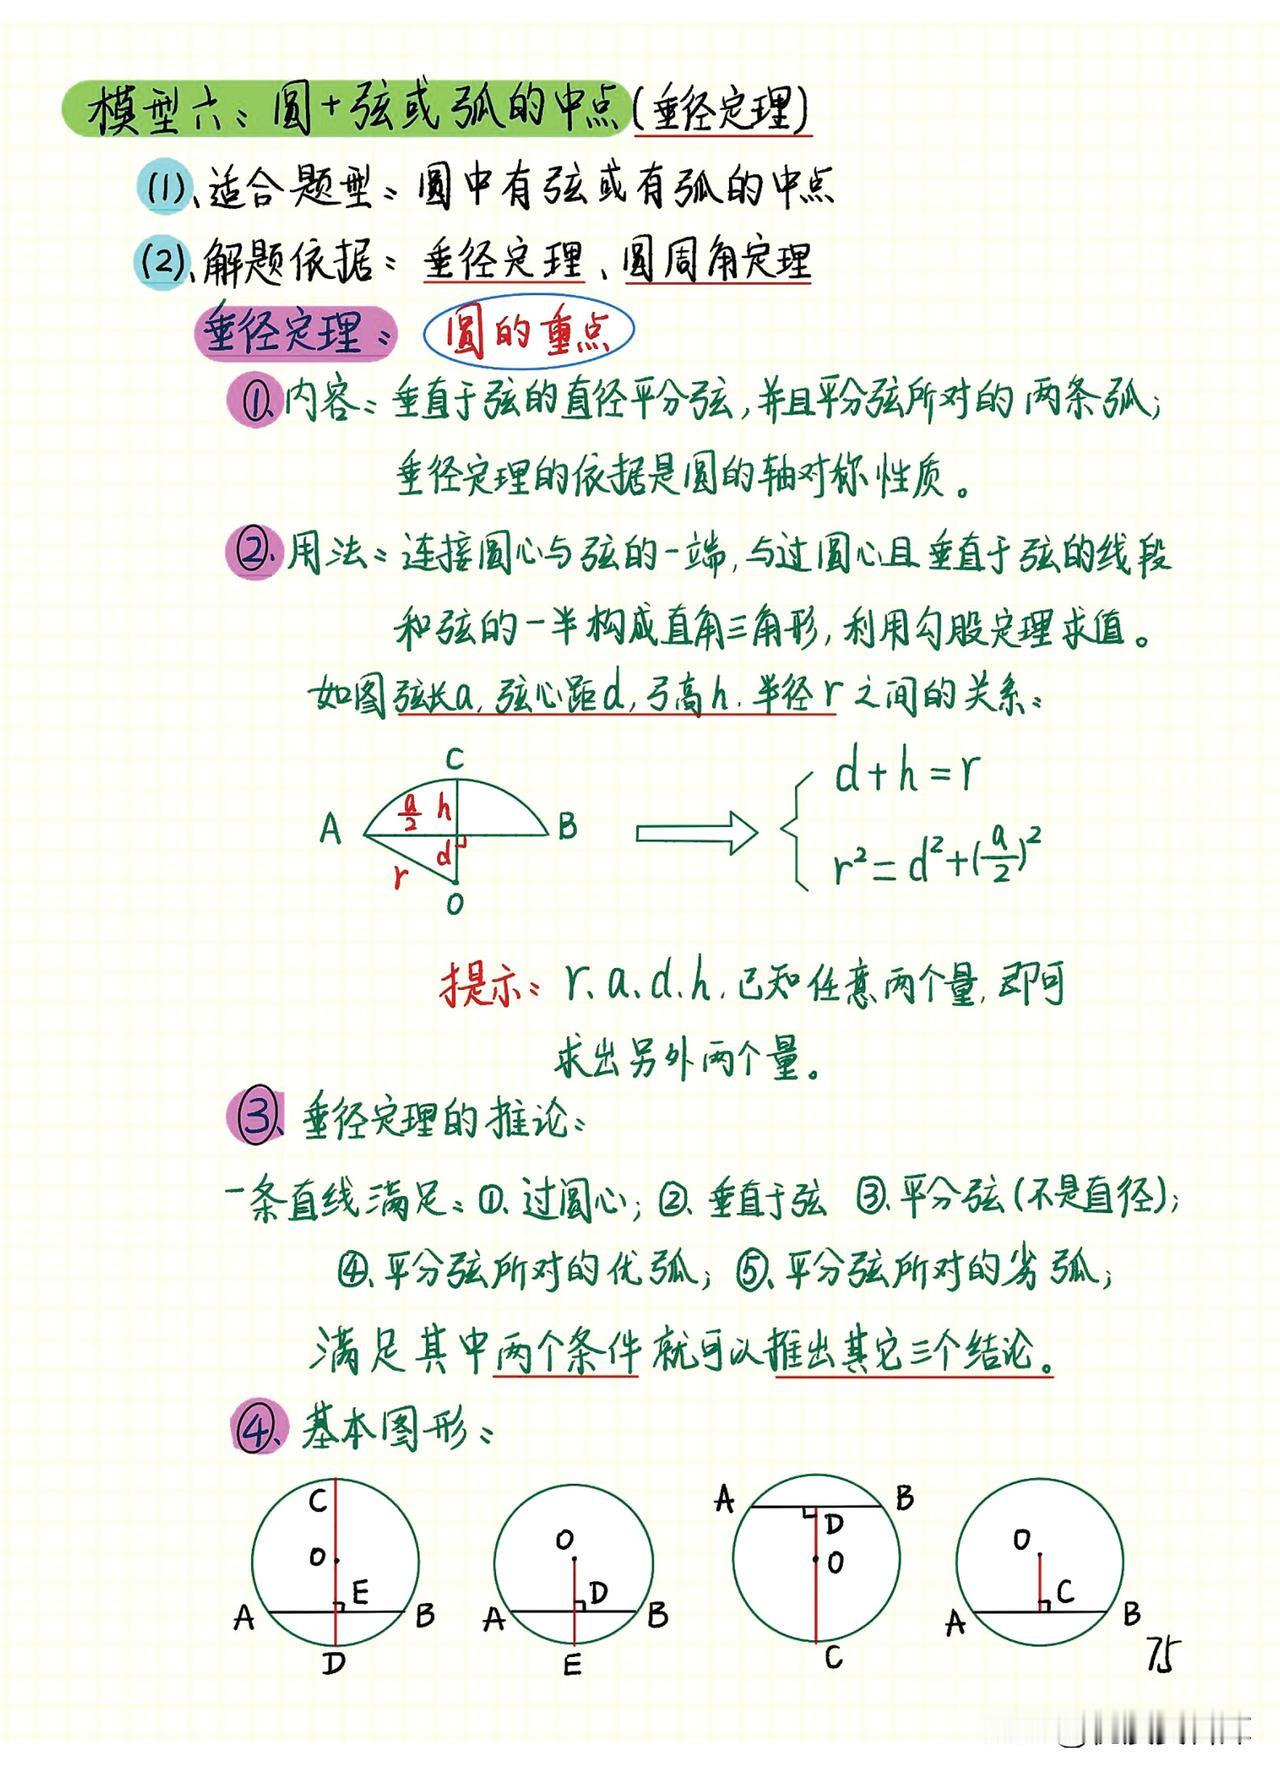 模型六：圆+弦或弧的中点(垂径定理)
(1)、适合题型：圆中有弦或有弧的中点
(2)、解题依据：垂径定理、圆周角定理
垂径定理：圆的重点
①、内容：垂直于弦的直径平分弦,并且平分弦所对的两条弧；
垂径定理的依据是圆的轴对称性质。
②、用法：连接圆心与弦的一端,与过圆心且垂直于弦的线段
和弦的一半构成直角三角形,利用勾股定理求值。
如图弦长a,弦心距d,弓高h.半径r之间的关系：
C
A a/2 h B
d
r
O
d+h=r
r²=d²+(a/2)²
提示：r、a、d、h,已知任意两个量,即可
求出另外两个量。
③、垂径定理的推论：
一条直线满足：①、过圆心；②、垂直于弦 ③、平分弦(不是直径)；
④、平分弦所对的优弧；⑤、平分弦所对的劣弧；
满足其中两个条件就可以推出其它三个结论。
④、基本图形：
C O E A B D
O D A B E
A B D O C
O C A B
75